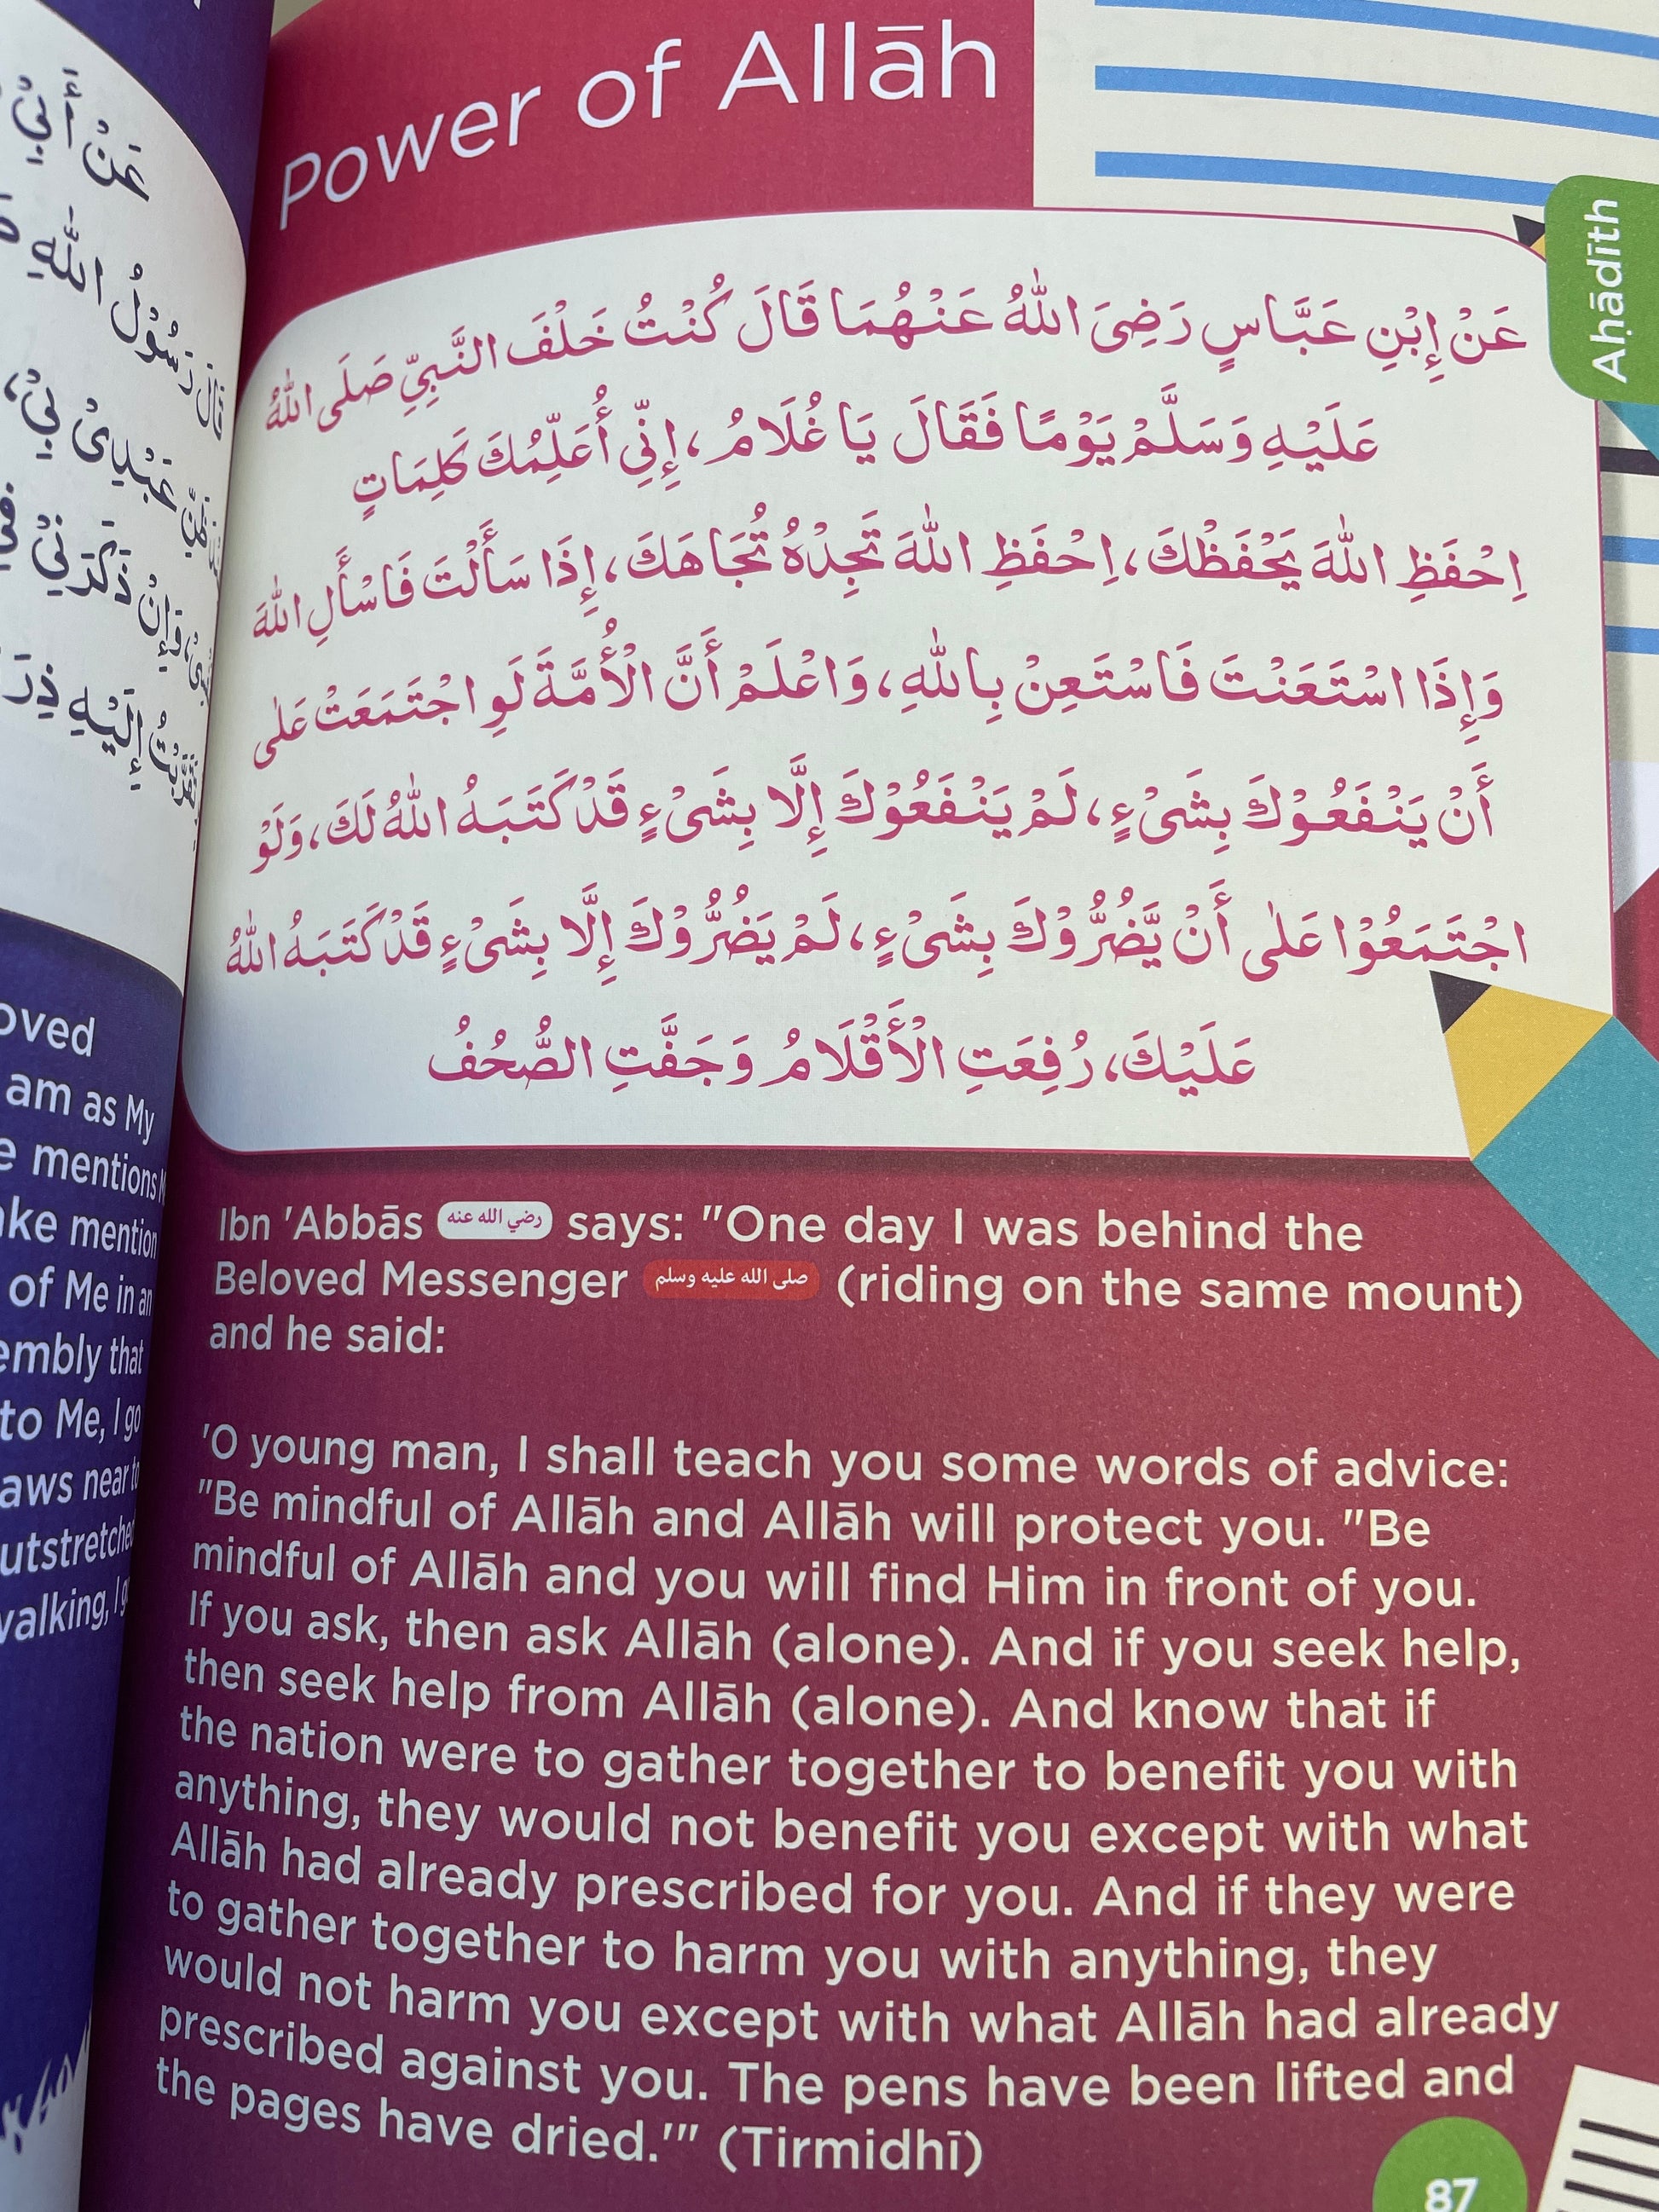 Power of Allāh
Aḥādīth
عَنْ إِبْنِ عَبَّاسٍ رَضِىَ اللهُ عَنْهُمَا قَالَ كُنْتُ خَلْفَ النَّبِيِّ صَلَى اللهُ
عَلَيْهِ وَسَلَّمْ يَوْمًا فَقَالَ يَا غُلَامُ، إِنِّي أُعَلِّمُكَ كَلِمَاتٍ
اِحْفَظِ اللهَ يَحْفَظْكَ، اِحْفَظِ اللهَ تَجِدْهُ تُجَاهَكَ، إِذَا سَأَلْتَ فَاسْأَلِ اللهَ
وَإِذَا اسْتَعَنْتَ فَاسْتَعِنْ بِاللهِ، وَاعْلَمْ أَنَّ الْأُمَّةَ لَوِ اجْتَمَعَتْ عَلٰى
أَنْ يَنْفَعُوْكَ بِشَىْءٍ، لَمْ يَنْفَعُوْكَ إِلَّا بِشَىْءٍ قَدْ كَتَبَهُ اللهُ لَكَ، وَلَوْ
اجْتَمَعُوْا عَلٰى أَنْ يَّضُرُّوْكَ بِشَىْءٍ، لَمْ يَضُرُّوْكَ إِلَّا بِشَىْءٍ قَدْ كَتَبَهُ اللهُ
عَلَيْكَ، رُفِعَتِ الْأَقْلَامُ وَجَفَّتِ الصُّحُفُ
Ibn 'Abbās رضي الله عنه says: "One day I was behind the
Beloved Messenger صلى الله عليه وسلم (riding on the same mount)
and he said:
'O young man, I shall teach you some words of advice:
"Be mindful of Allāh and Allāh will protect you. "Be
mindful of Allāh and you will find Him in front of you.
If you ask, then ask Allāh (alone). And if you seek help,
then seek help from Allāh (alone). And know that if
the nation were to gather together to benefit you with
anything, they would not benefit you except with what
Allāh had already prescribed for you. And if they were
to gather together to harm you with anything, they
would not harm you except with what Allāh had already
prescribed against you. The pens have been lifted and
the pages have dried.'" (Tirmidhī)
87
عَنْ أَبِيْ
قَالَ رَسُوْلُ اللهِ
ظَنِّ عَبْدِىْ بِيْ،
فَإِنْ ذَكَرَنِيْ
إِلَيْهِ
am as My
mentions
mention
of Me in an
that
to Me, I go
near to